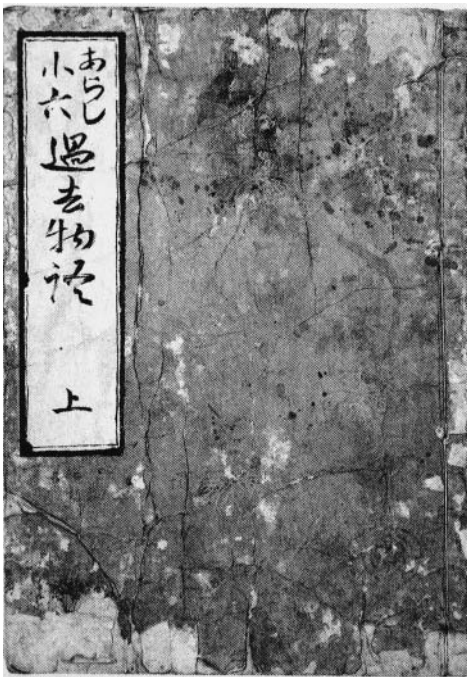 あらし
小六過去物語
上